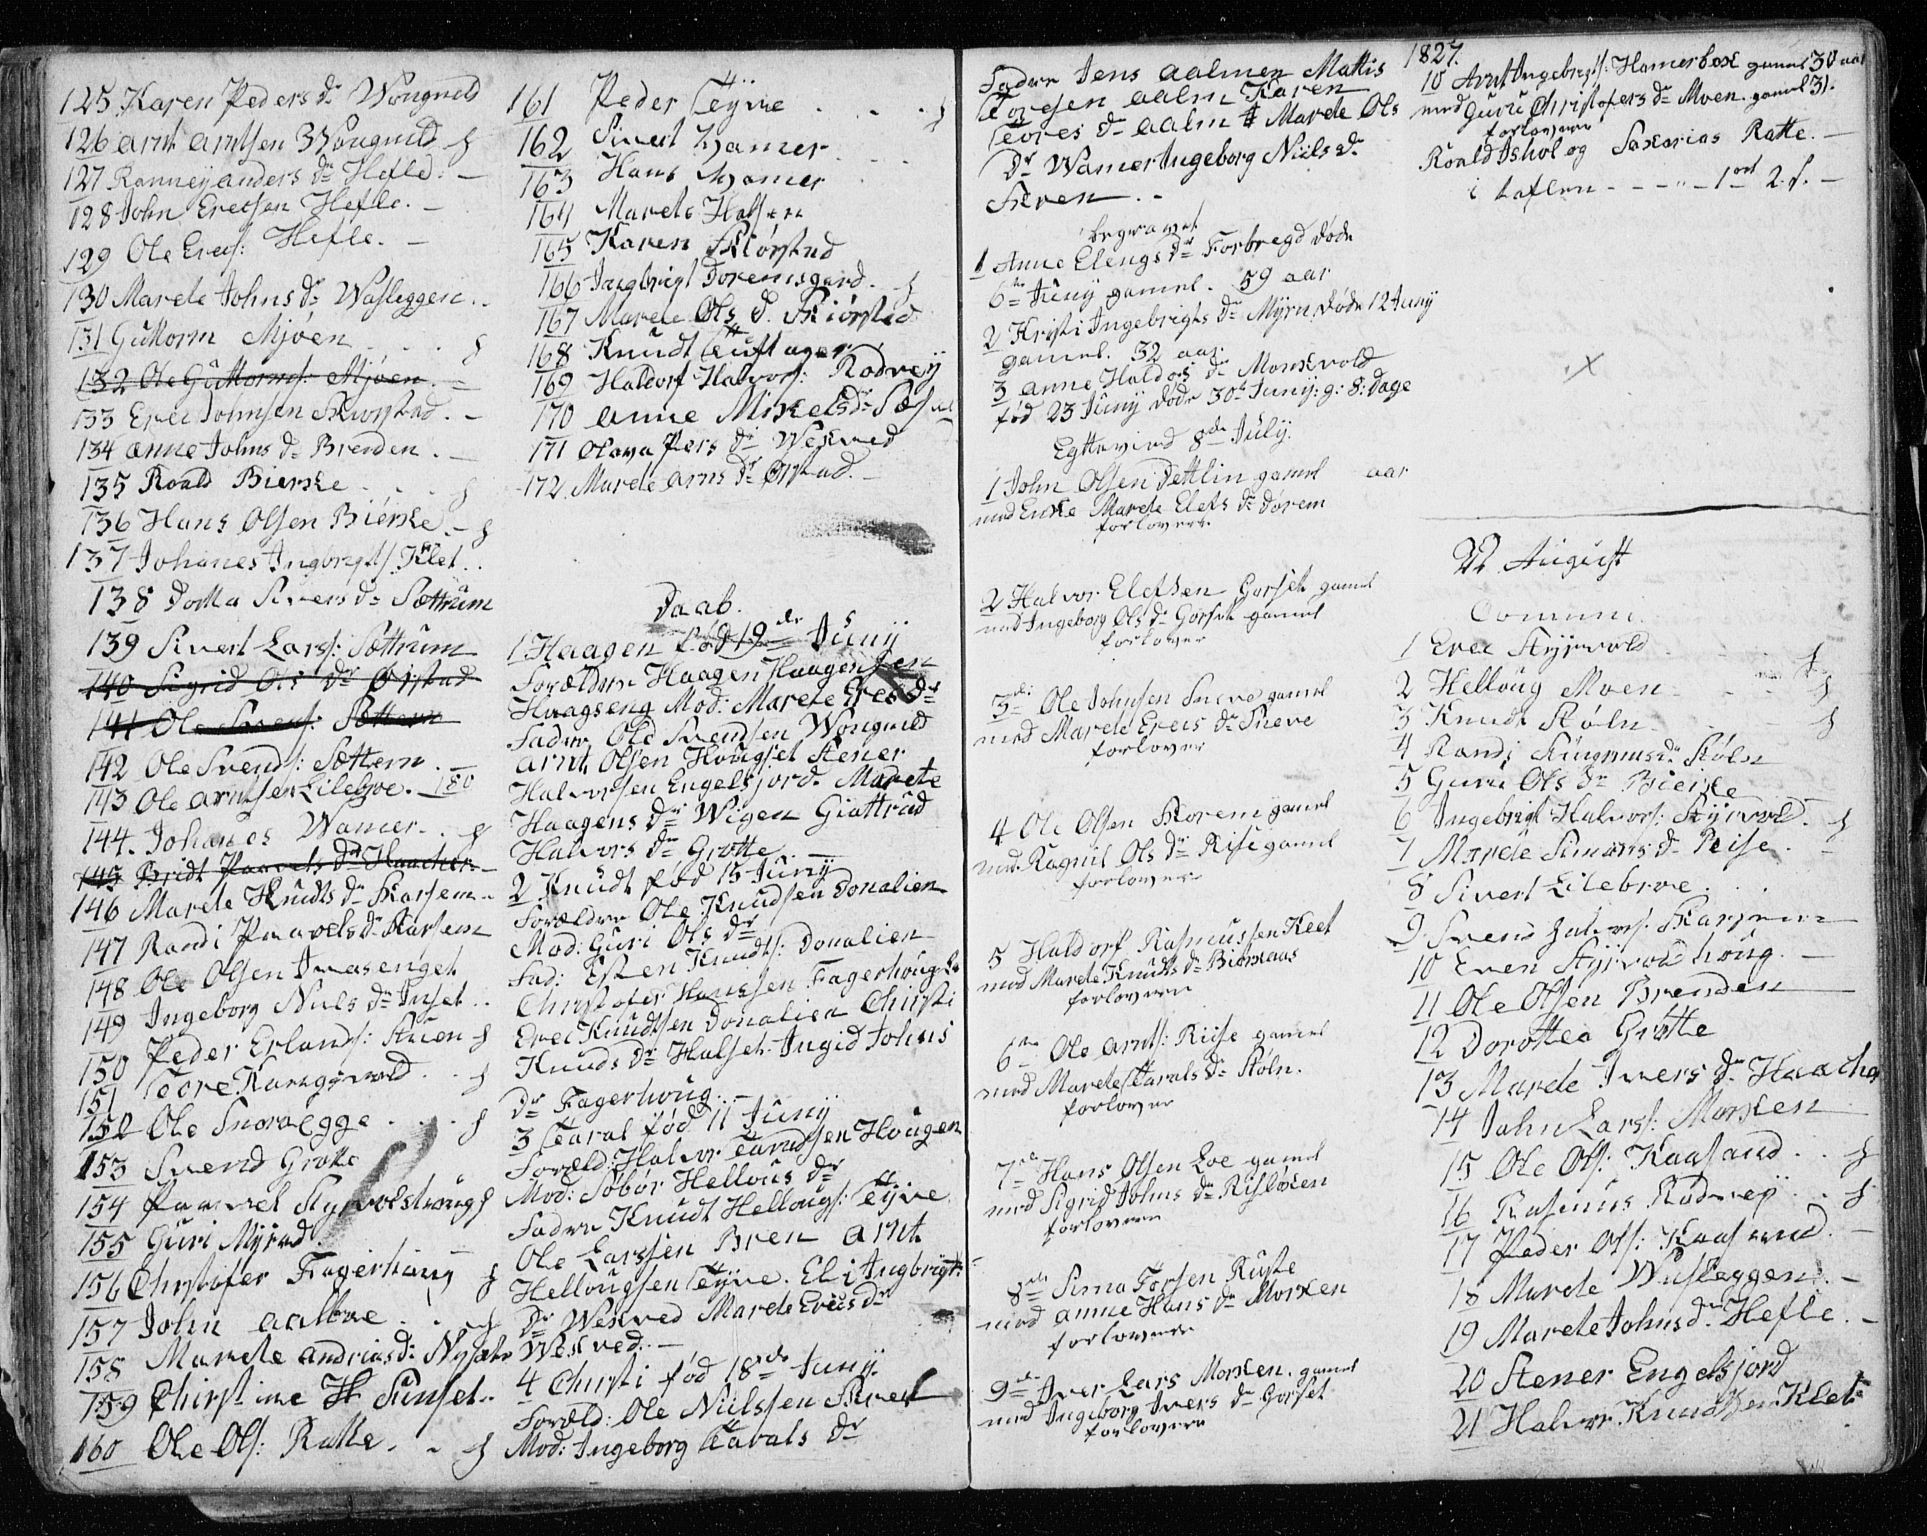 125 Karen Peders Dr Wongneld
126 Arnt Arntsen Wongneld
127 Ranney Anders Dr Hefle. -
128 John Erecsen Hefle. -
129 Ole Erecs: Hefle. -
130 Marete Johns Dr Wasleggen..
131 Guttorm Mjöen . . . .
132 Ole Guttorms: Mjöen. -
133 Erec Johnsen Skorstad. -
134 Anne Johns Dr Brenden. -
135 Roald Bierke . . .
136 Hans Olsen Bierke. -
137 Johanes Ingbrigts. Klet..
138 Sivers Dr Sættrum
139 Sivert Lars: Sættrum
140 Sigrid Ols Dr Örstad
141 Ole Sættern
142 Ole Svends: Sættern. -
143 Ole Arntsen Lilebroe. - 180
144. Johanes Wamer. .
145 Bridt Paavels Dr Haacher. -
146 Marete Knudts Dr Karsem..
147 Randi Paavels Dr Karsem
148 Ole Olsen Ivasenget
149 Ingeborg Niels Dr Inset..
150 Peder Erlands: Huen
151 Tore Kangsvold . .
152 Ole Snoroegge . . . .
153 Svend Grotte
154 Paavel Styrvolshoug
155 Guri Myrvd
156 Christofer Fagerhaug
157 John Aalbue . . .
158 Marete Andrias Dr Nysæter
159 Christine H Sunset..
160 Ole Ols: Ratte. . -
161 Peder Töyve . . . .
162 Sivert Wamer . . .
163 Hans Wamer
164 Marete Halsen
165 Karen Skiörstad
166 Ingbrigt Doremsgard. -
167 Marete Ols D. Skiörstad
168 Knudt
169 Haldorf Halvors: Rodvey
170 Anne Mikels Dr
171 Olava Pers Dr Wekved
172 Marete Arns Dr Örstad. -
Daab.
1 Haagen fød 19de Juny
Forældre Haagen Haagensen
Haagseng Mod: Marete Erecs Dr
Fadre Ole Svendsen Wongneld
Arnt Olsen Hougset Stener
Halvorsen Engelsjord. Marete
Haagens Dr Wigen Giattrud
Halvors Dr Grotte -
2 Knudt fød 15 Juny
Forældre Ole Knudsen Donalien
Mod: Guri Ols Dr
Fad: Esten Knudts: Donalien
Christofer Hanssen Fagerhoug
Erec Knudtsen Donalien Christi
Knuds Dr Halset. Ingid Johns
Dr Fagerhoug. -
3 Taral fød 11 Juny
Foræld: Halvor Taraldsen Hougen
Mod: Søbör Hellous Dr
Fadre Knudt Hellougs: Töyve
Ole Larssen Bren Arnt
Hellougsen Töyve. Eli Ingbrigt:
Dr Wekved Marete Erecs Dr
Wekved. -
4 Christi fød 18de Juny
Foræld: Ole Nielssen
Mod: Ingeborg Tarals Dr
Fadre Jens Aalmen Mattis
Torgsen Aalm Karen
Tores Dr Aalm Marete Ols
Dr Wamer Ingeborg Niels D.
. -
begravet
1 Anne Elengs Dr Forbregd døde
6te Juny gamel. 59 aar
2 Kristi Ingebrigts Dr Myrn døde 12 Juny
gamel. 32 aar.
3 Anne Haldors Dr Monkvold
fød 23 Juny døde 30te Juny: g: 8: Dage
Egttevied 8de July.
1 John Olsen Dettlin gamel aar
med Enke Marete Elefs Dr Dörem
forlovere
2 Halvor Elefsen Gorset gamel
med Ingeborg Ols Dr Gorset gamel
forlover
3de Ole Johnsen Sneve gamel
med Marete Erecs Dr Sneve
forlover
4 Ole Olsen Korem gamel
med Ragnil Ols Dr Rise gamel
forlovere
5 Haldorf Rasmussen Keet
med Marete Knudts Dr Birkaas
forlovere
6te Ole Arnts: Riise gamel
med Marete Tarals Dr Støln.
forlover
7de Hans Olsen Loe gamel
med Sigrid Johns Dr Risløken
forlovere
8de Sima Forsen Ruste
med Anne Hans Dr Morken
forlovere
9de Iver Lars Morken. gamel
med Ingeborg Ivers Dr Gorset
forlovere
1827.
10 Arnt Ingebrigts: Hamerbok gamel 30 aar
med Guru Christofers Dr Moen. gamel 31.
forlovere
Roald Ishol og Saxarias Ratte. -
i taflen - - - - 1 ort 2. s. -
22 August
Comuni.
1 Erec Styrvold
2 Helloug Moen
3 Knudt Støln
4 Randi Støln
5 Guru Ols Dr Bierke
6 Ingebrigt Halvors: Styrvold.
7 Marete Simons Dr Reise. -
8 Sivert Lilebroe. . .
9 Svend Halvors. Karsem
10 Even Styrvoldhoug. -
11 Ole Olsen Brenden
12 Dorottea Grotte
13 Marete Ivers Dr Haacher
14 John Lars: Morken
15 Ole Ols: Kaasand . .
16 Rasmus Rodvey . .
17 Peder Ols: Kaasand. -
18 Marete Wasleggen. -
19 Marete Johns Dr Hefle. -
20 Stener Engelsjord
21 Halvor Knudtsen Klet